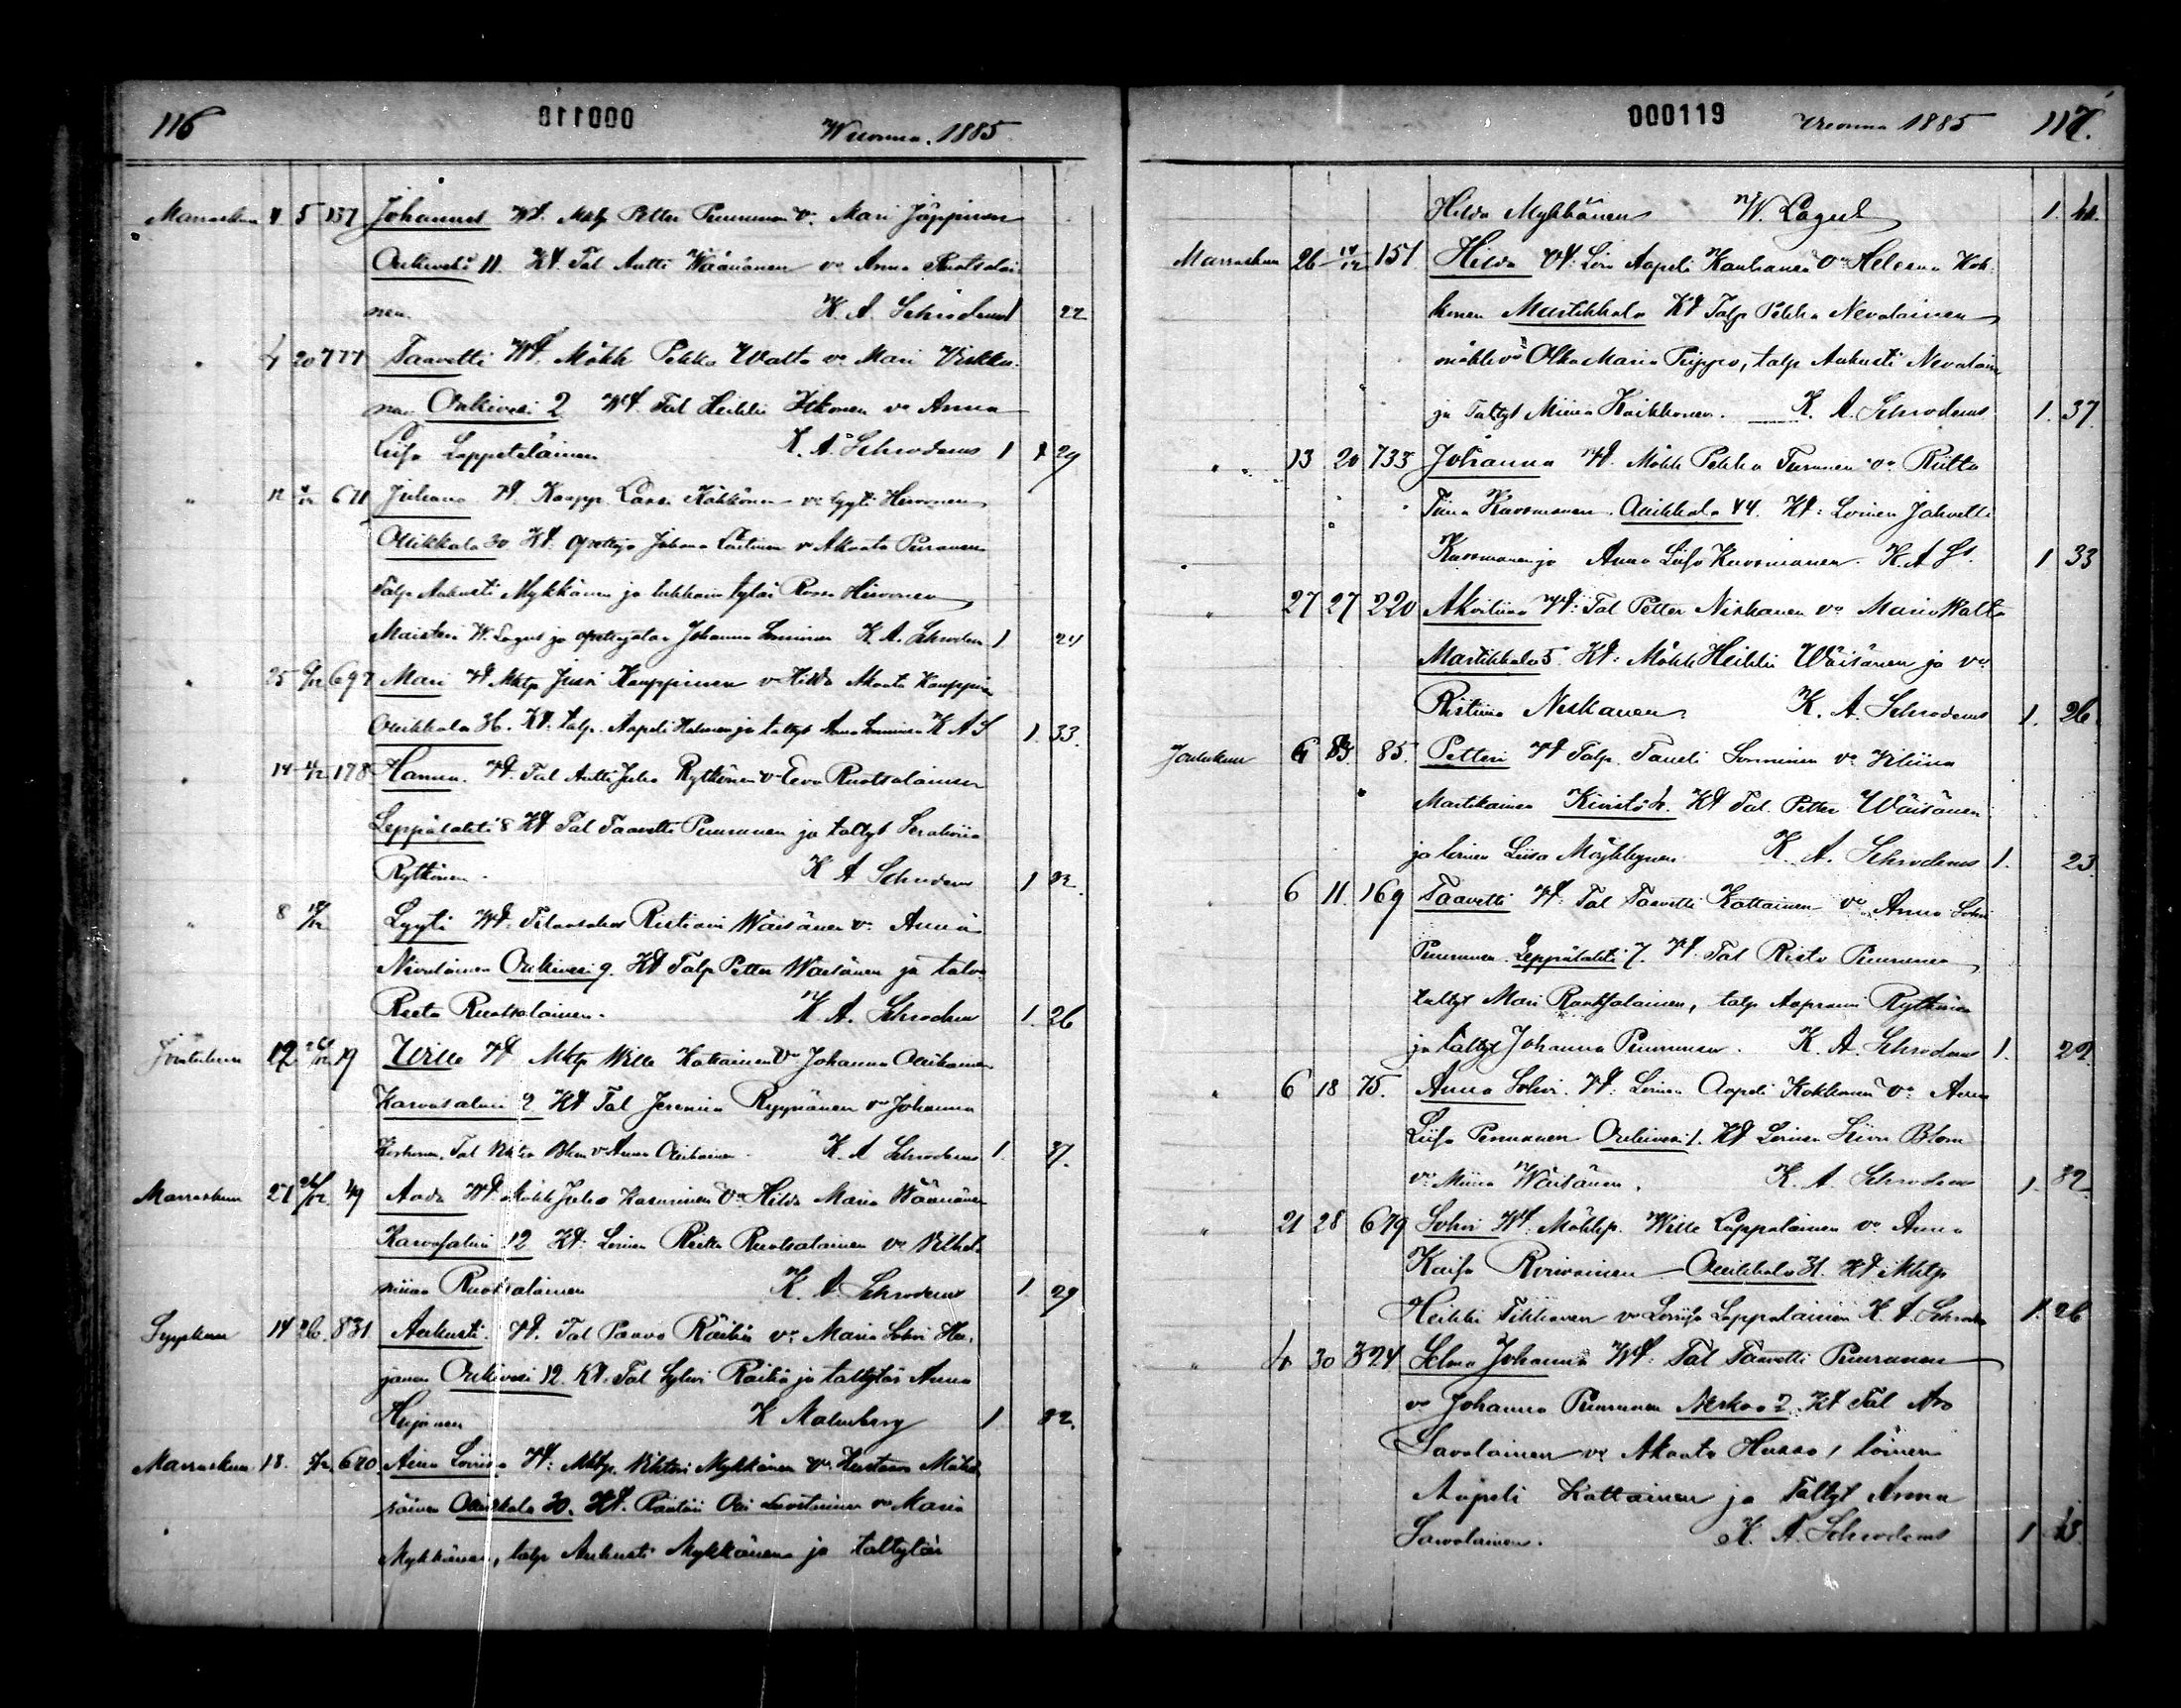 116 000118 Wuonna. 1885
Marraskuu 4 5 137 Johannes Wt. Mktp Petter Puurunen vo Mari Jäppinen
Onkivesi 11. Kt. Tal Antti Wäänänen vo Anna Ruotsalai-
nen. K. A. Schroderus 1 22
" 4 20 777 Taavetti Wt. Mökk Pekka Walta vo Mari
nen Onkivesi 2 Kt. Tal Heikki Ikonen vo Anna
Liisa Lappeteläinen K. A. Schroderus 1 29
" 12 671 Juhana Wt. Kaupp. Lassi Kähkönen vo Lyyti Hirvonen
Ollikkala 30 Kt. Opettaja Juhana vo Akaata Puranen
Talp Aukusti Mykkänen ja lukkarin tytär Roosa Hirvonen
Maisteri W. Lagus ja opettajatar Johanna K. A. Schroderus 1 24
" 25 697 Mari Wt Mktp Jussi Kauppinen vo Hilda Akaata Kauppinen
Ollikkala 36. Kt. talp. Aapeli ja taltyt Anna K A S 1. 33.
" 14 178 Hanna. Wt. Tal Antti Juho Rytkönen vo Eeva Ruotsalainen
Leppälahti 8 Kt Tal Taavetti Puurunen ja taltyt Serahviia
Rytkönen. K A Schroderus 1 22.
" 8 Lyyti Wt. Ristiani Wäisänen vo Anna
Nevalainen Onkivesi 9. Kt Talp Petter Wäisänen ja talv.
Reeta Ruotsalainen. K. A. Schroderus 1. 26
Joulukuu 12 19 Wille Wt Mktp Wille Kattainen Vo Johanna Ollikainen
Karvasalmi 2 Kt Tal Jeremia Ryynänen vo Johanna
Korhonen, Tal Blom vo Anna Ollikainen. K. A Schroderus 1. 37.
Marraskuu 27 49 Aada Wt. Mökk Juho Kasurinen Vo Hilda Maria Wäänänen
Karvasalmi 12 Kt: Loinen Ruotsalainen vo Wilhel-
miina Ruotsalainen K. A. Schroderus 1. 29
Syyskuu 14 26. 831 Aukusti. Wt. Tal Paavo Räikiä vo Maria Sohvi Hei-
janen Onkivesi 12. Kt. Tal Sylvi Räikiä ja taltytär Anna
Heijanen K Malmberg 1 32.
Marraskuu 18. 670 Aina Loviisa Wt: Mktp. Wihtori Mykkänen vo Kustaava
Ollikkala 30. Kt. Räätäli vo Maria
Mykkänen, talp Aukusti Mykkänen ja taltytär
000119 Wuonna 1885 117.
Hilda Mykkänen W. Lagus 1.
Marraskuu 26 14/12 151 Hilda Wt: Loin Aapeli Kauhanen Vo Heleena Kok-
konen Martikkala Kt Talp Pekka Nevalainen
mökk vo Olka Maria Pippo, talp Aukusti Nevalainen
ja Taltyt Miina Kaikkonen. K. A. Schroderus 1. 37.
" 13 20 733 Johanna Wt. Mökk Pekka Turunen vo Riitta
Tiina Kuosmanen. Ollikkala 44. Kt: Loinen Jahvetti
Kuosmanen ja Anna Liisa Kuosmanen. K. A Ss. 1 33
" 27 27 220 Akviliina Wt: Tal Petter Niskanen vo Maria Walta
Martikkala 5. Kt: Mökk Heikki Wäisänen ja vo
Ristiina Niskanen. K. A. Schroderus 1. 26.
Joulukuu 6 85. Petteri Wt Talp. Taneli Sonninen vo Viliina
Martikainen Kivistö 4. Kt Tal. Petter Wäisänen
ja loinen Liisa Möykkynen K. A. Schroderus 1. 23.
" 6 11. 169 Taavetti Wt: Tal Taavetti Kattainen vo Anna Sohvi
Puurunen. Leppälahti 7. Kt. Tal Risto Puurunen
taltyt Mari Ruotsalainen, talp Aaprami Rytkönen
ja taltyt Johanna Puurunen. K. A. Schroderus 1. 22.
" 6 18 75. Anna Sohvi. Wt: Loinen Aapeli Kokkonen vo Anna
Liisa Pennanen Onkivesi 1. Kt Loinen Blom
vo Miina Wäisänen. K. A. Schroderus 1. 32.
" 21 28 679 Sohvi Wt. Mökkp. Wille Lappalainen vo Anna
Kaisa Roivainen Ollikkala 31. Kt Mktp
Heikki Tikkanen vo Loviisa Lappalainen K. A Schroderus 1. 26
" 4 30 324 Selma Johanna Wt: Tal Taavetti Puurunen
vo Johanna Puurunen Nerkoo 2. Kt Tal Aro
Savolainen vo Akaata Husso, loinen
Aapeli Kattainen ja Taltyt Anna
Savolainen. K. A. Schroderus 1